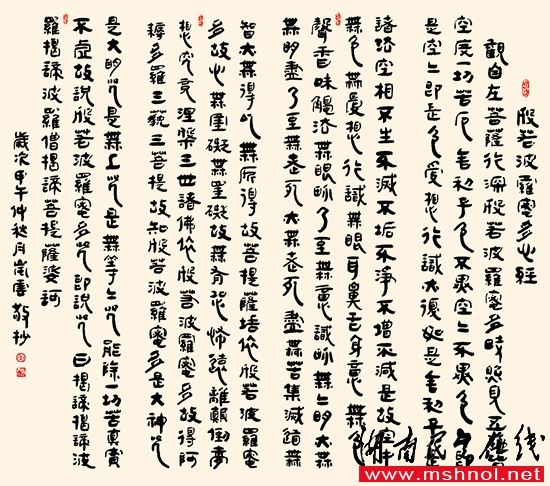 般若波羅蜜多心經
觀自在菩薩行深般若波羅蜜多時照見五蘊皆
空度一切苦厄舍利子色不異空空不異色色即
是空空即是色受想行識亦復如是舍利子是
諸法空相不生不滅不垢不淨不增不減是故空中
無色無受想行識無眼耳鼻舌身意無色
聲香味觸法無眼界乃至無意識界無無明亦無
無明盡乃至無老死亦無老死盡無苦集滅道無
智亦無得以無所得故菩提薩埵依般若波羅蜜
多故心無罣礙無罣礙故無有恐怖遠離顛倒夢
想究竟涅槃三世諸佛依般若波羅蜜多故得阿
耨多羅三藐三菩提故知般若波羅蜜多是大神咒
是大明咒是無上咒是無等等咒能除一切苦真實
不虛故說般若波羅蜜多咒即說咒曰揭諦揭諦波
羅揭諦波羅僧揭諦菩提薩婆訶
歲次甲午仲秋月嵐雲敬抄
www.mshnol.net